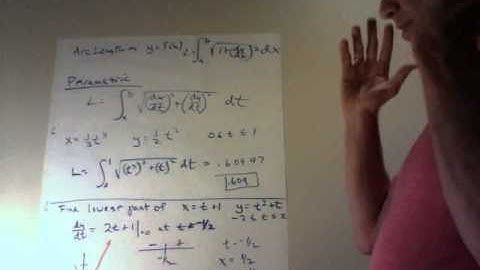 Arc Length for y=f(x) L=∫ₐᵇ √(1+(dy/dx)²) dx
Parametric
L = ∫ₐᵇ √((dx/dt)²+(dy/dt)²) dt
x=⅓t³ y=½t² 0≤t≤1
L= ∫₀¹ √((t²)²+(t)²) dt = .60947
.609
Find lowest part of x=t+1 y=t²+t
-2≤t≤2
dy/dt = 2t+1 =0 at t=-1/2
- +
-1/2
t=-1/2
x=1/2